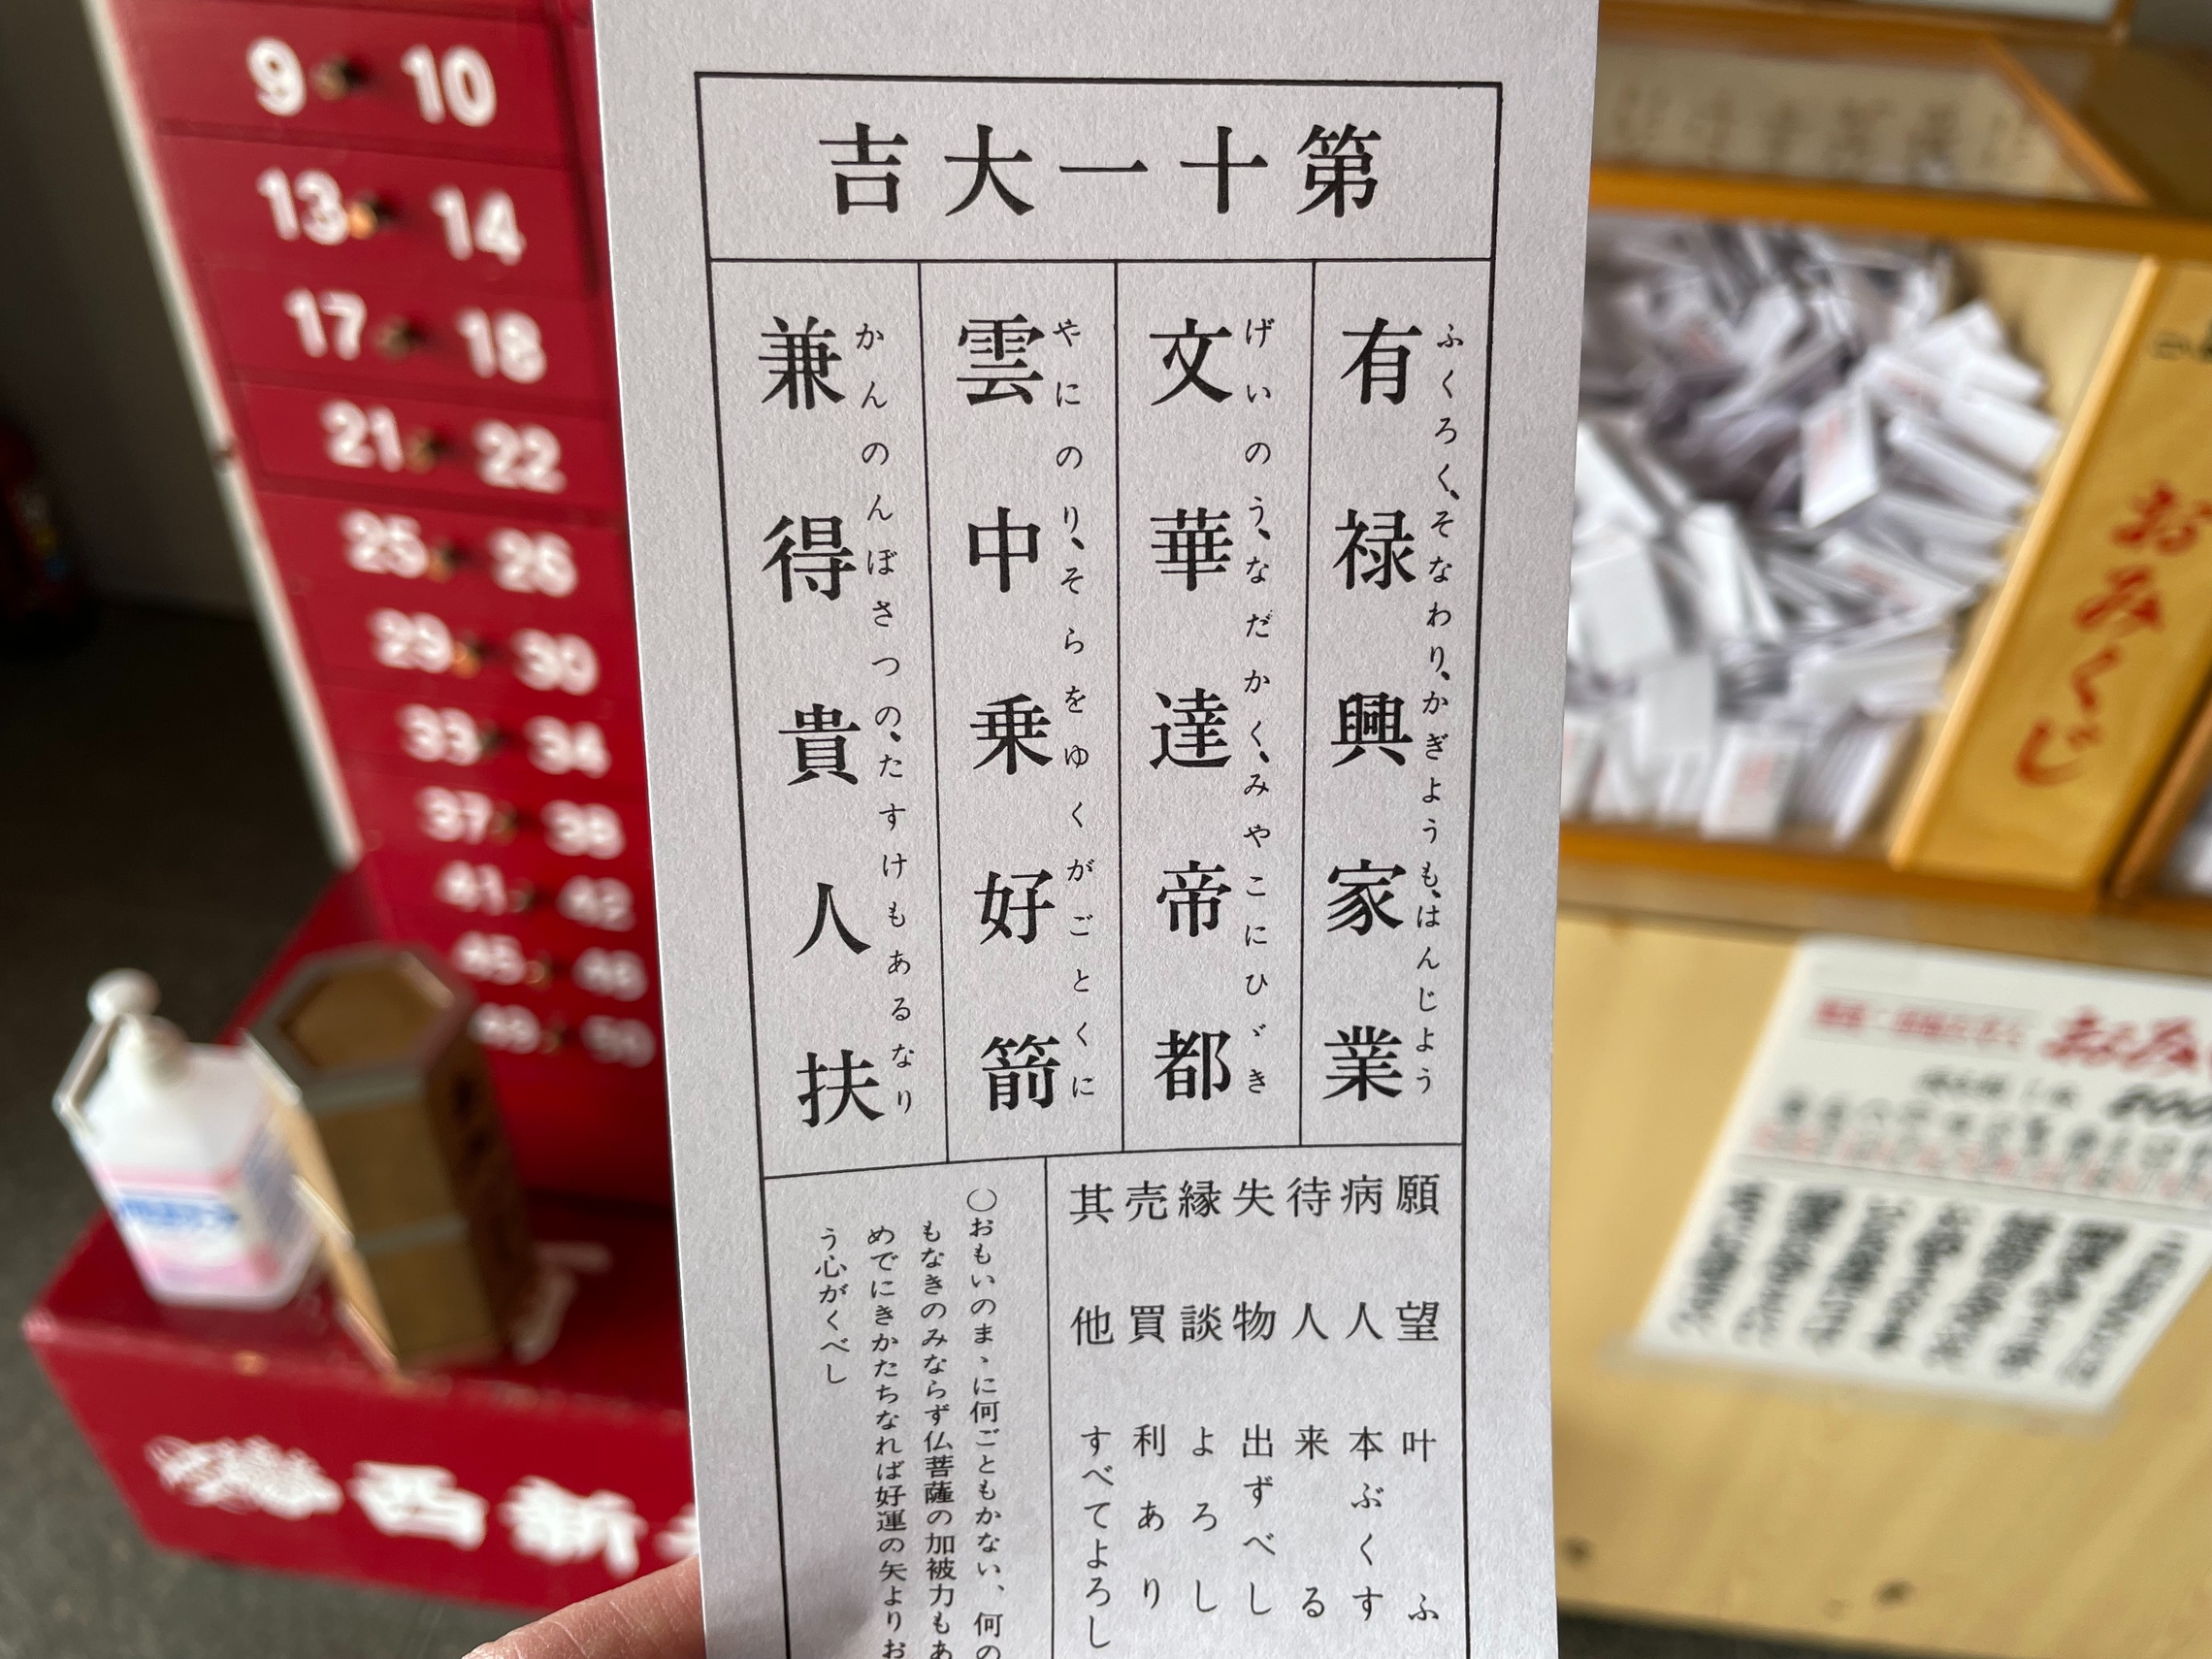 第十一大吉
有禄興家業
ふくろく、そなわり、かぎようも、はんじよう
文華達帝都
げいのう、なだかく、みやこにひゞき
雲中乗好箭
やにのり、そらをゆくがごとくに
兼得貴人扶
かんのんぼさつの、たすけもあるなり
願望 叶ふ
病人 本ぶくす
待人 来る
失物 出ずべし
縁談 よろし
売買 利あり
其他 すべてよろし
○おもいのまゝに何ごともかない、何の
もなきのみならず仏菩薩の加被力もあ
めでにきかたちなれば好運の矢よりお
う心がくべし
9 10
13 14
17 18
21 22
25 26
29 30
33 34
37 38
41 42
45 46
49 50
西新
おみくじ